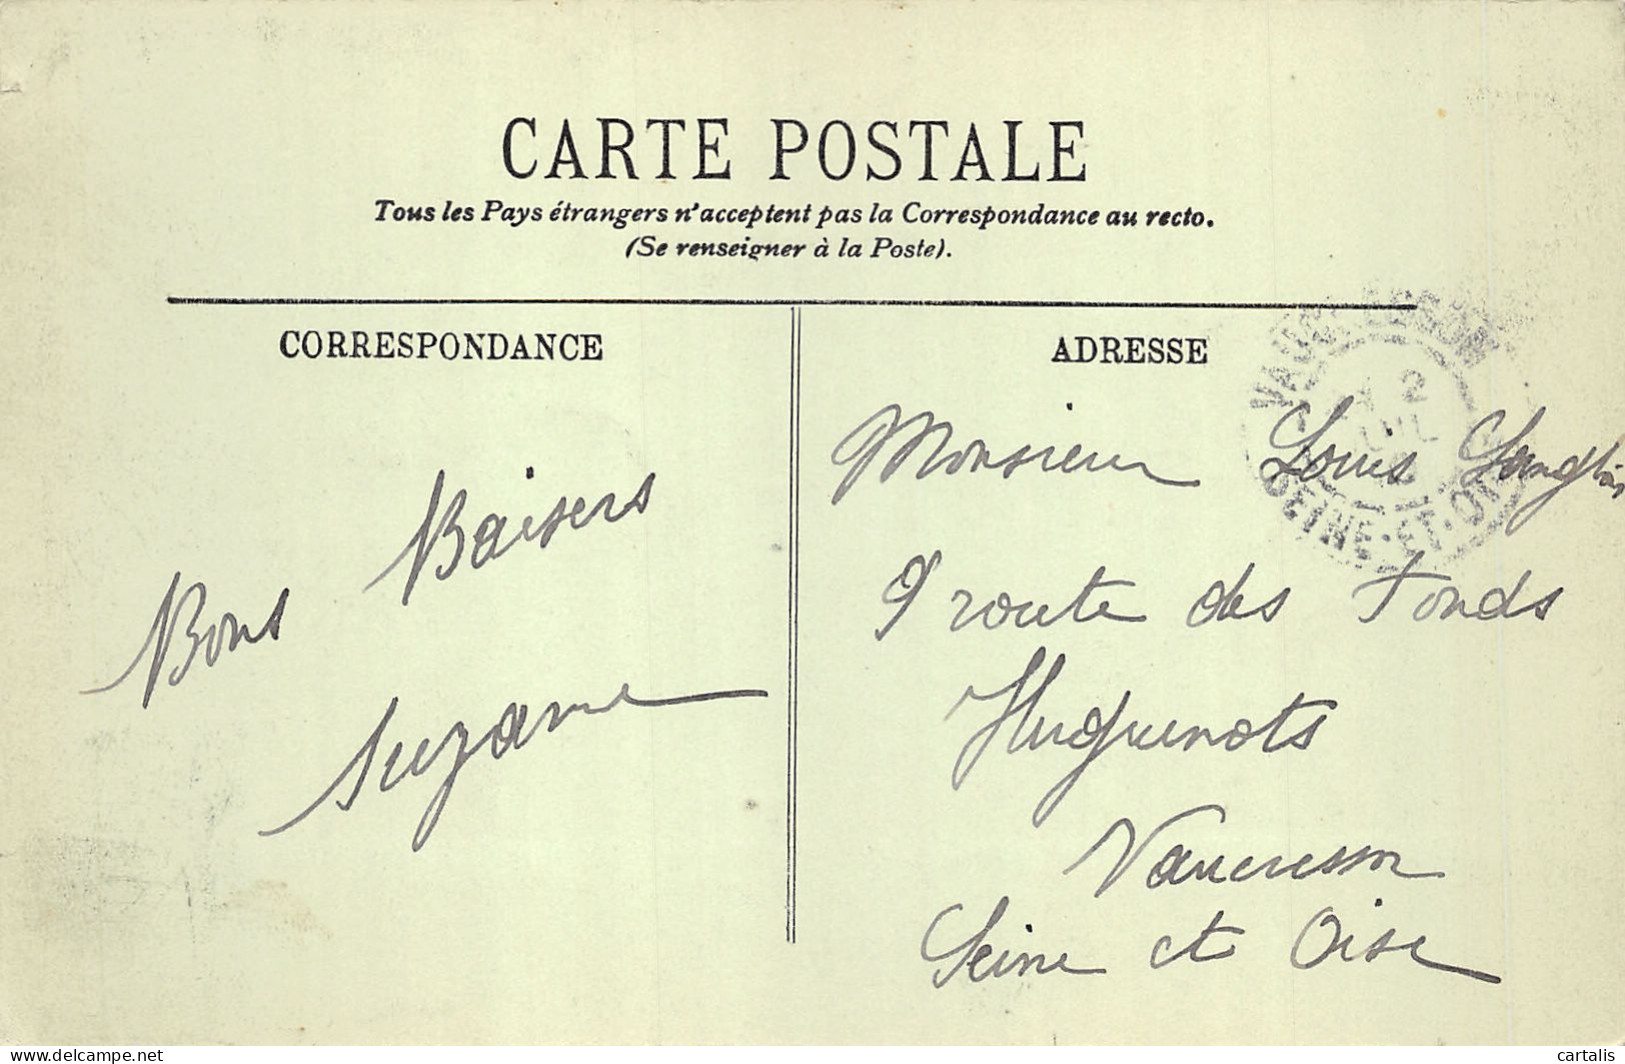 CARTE POSTALE
Tous les Pays étrangers n'acceptent pas la Correspondance au recto.
(Se renseigner à la Poste).
CORRESPONDANCE
Bons Baisers
Suzanne
ADRESSE
Monsieur Louis Langlois
9 route des Fonds
Huguenots
Vaucresson
Seine et Oise
VAUCRESSON
2
SEINE-ET-OISE
www.delcampe.net
cartalis